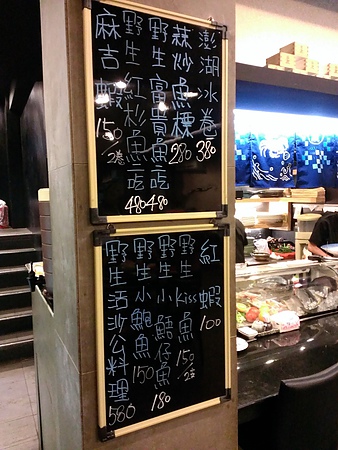 澎湖冰卷 380
蒜炒魚標 280
野生富貴魚二吃 480
野生紅杉魚二吃 480
麻吉蝦 150/2卷
紅蝦 100
野生kiss魚 150/2隻
野生小仔魚 180
野生小鮑魚 150
野生活沙公料理 580